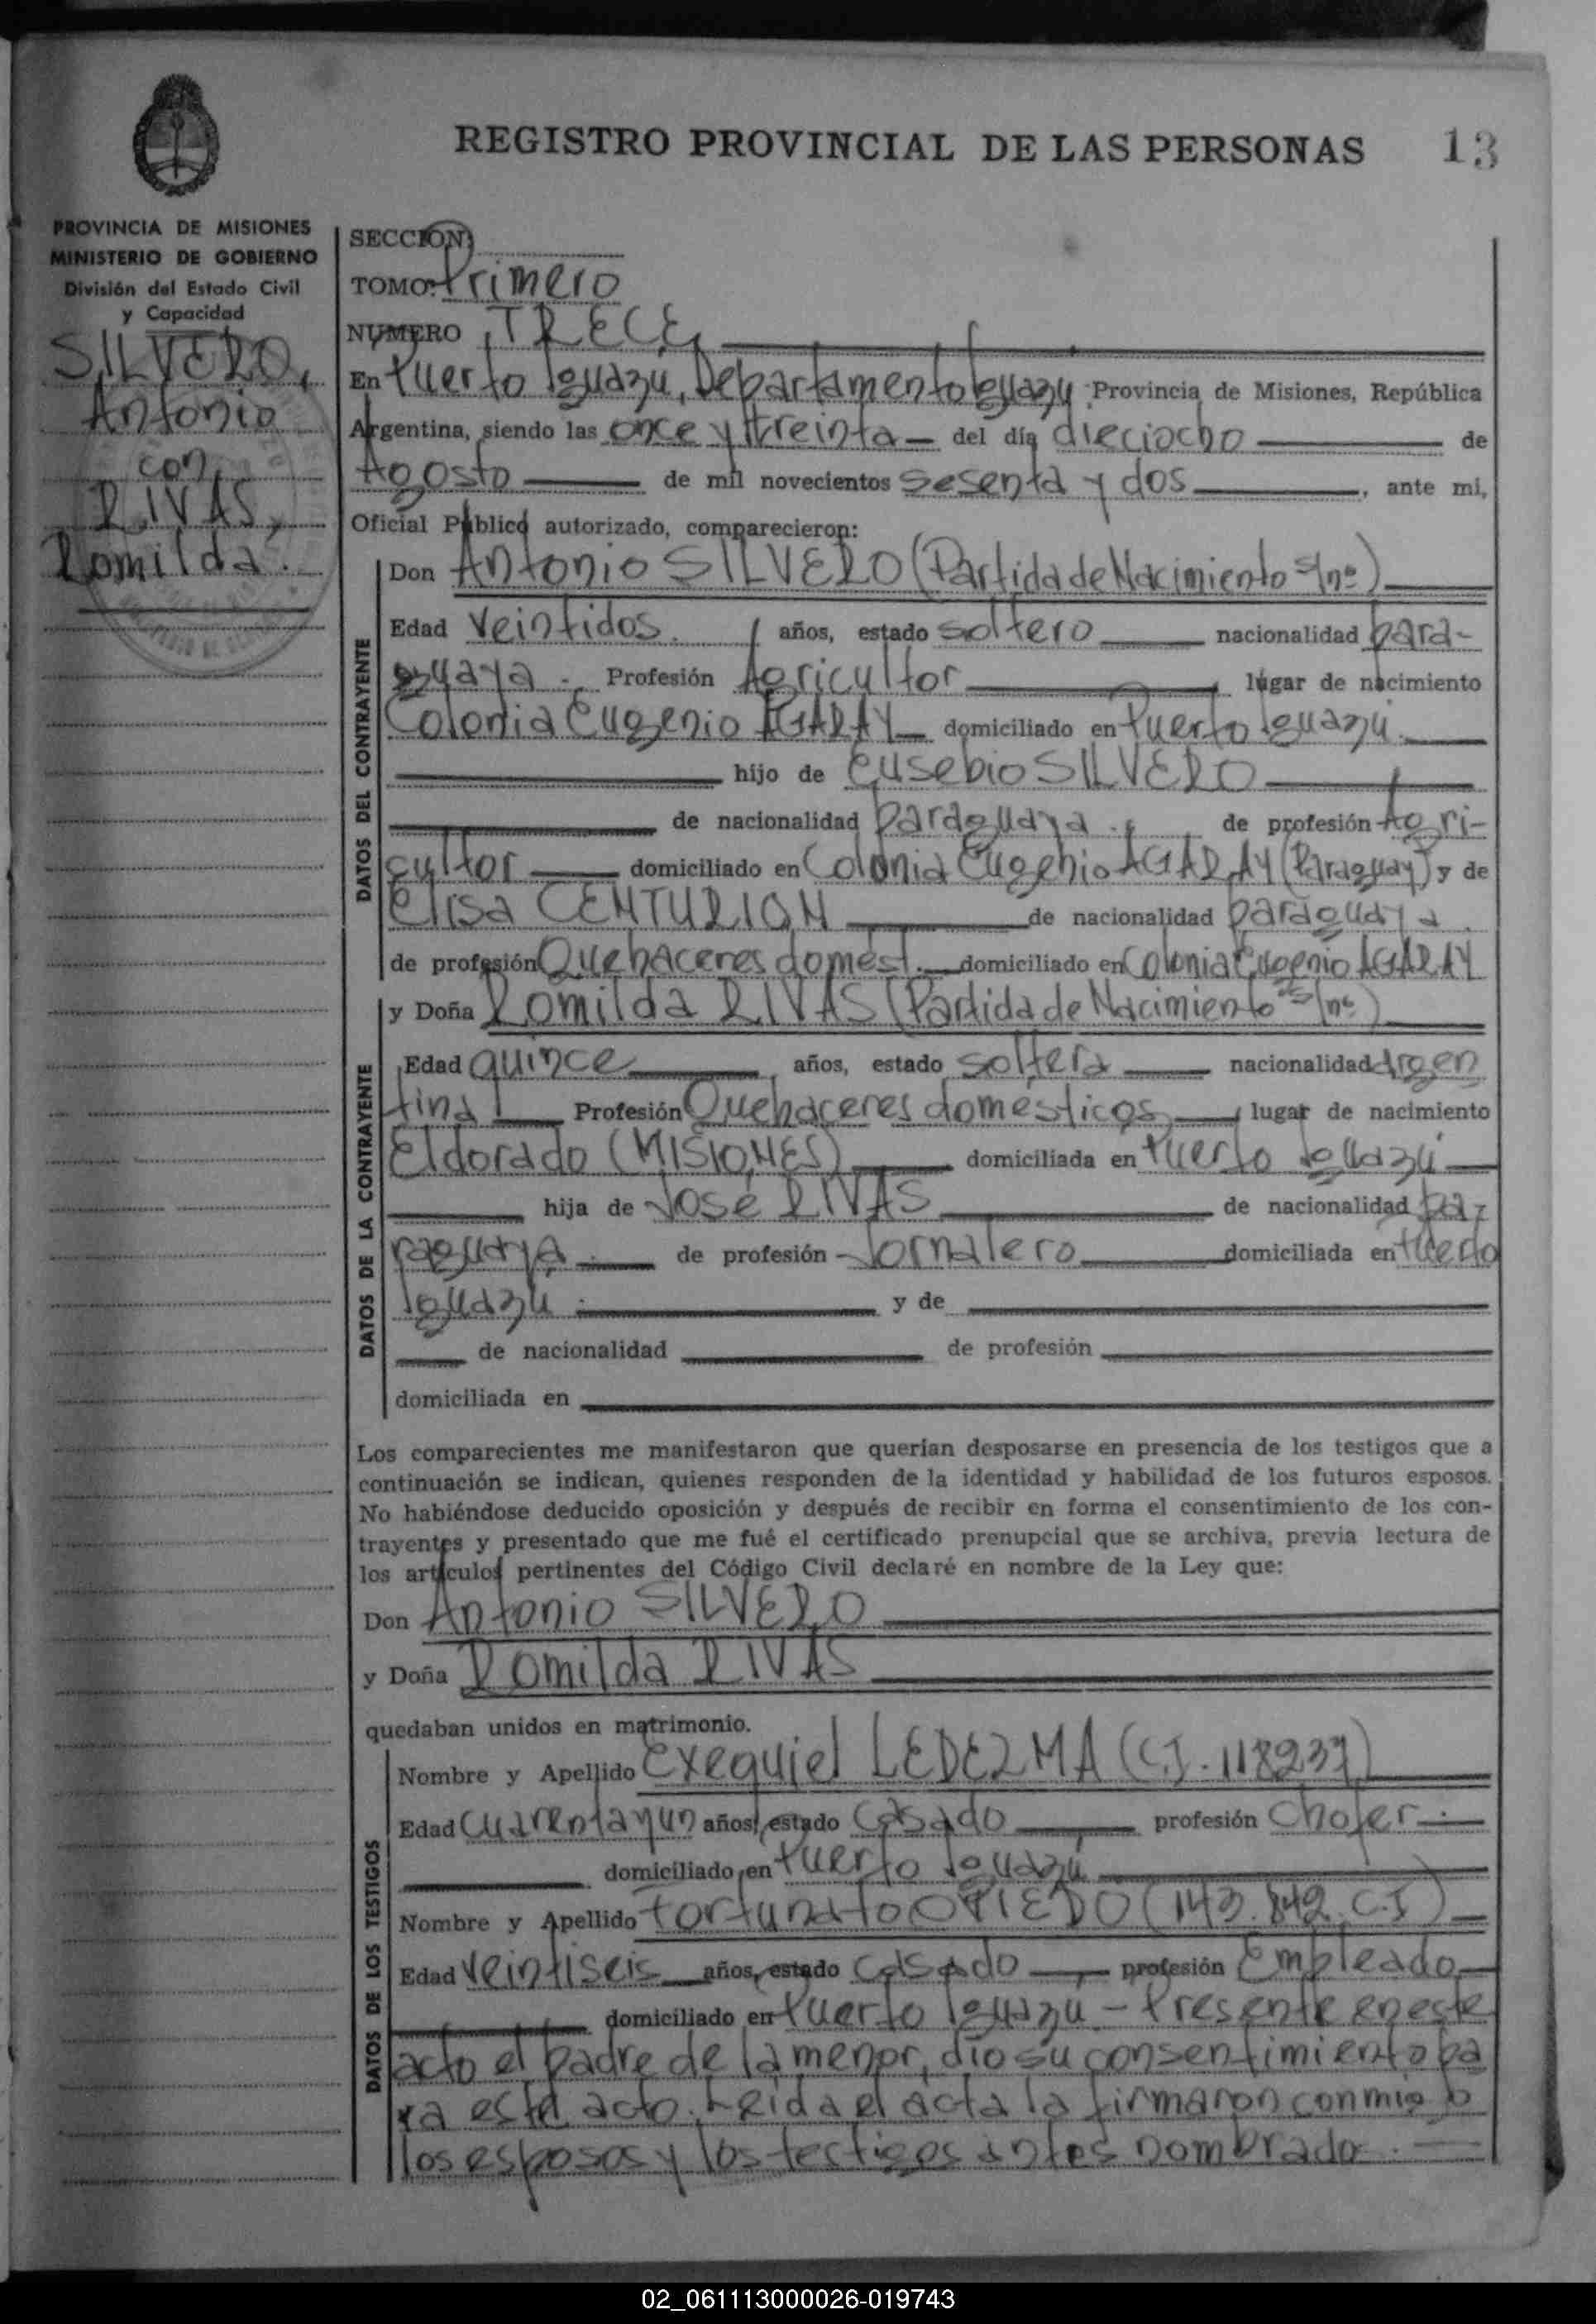 REGISTRO PROVINCIAL DE LAS PERSONAS 13
PROVINCIA DE MISIONES
MINISTERIO DE GOBIERNO
División del Estado Civil
y Capacidad
SILVERO,
Antonio
con
RIVAS,
Romilda.
SECCION
TOMO: Primero
NUMERO TRECE
En Puerto Iguazú, Departamento Iguazú Provincia de Misiones, República
Argentina, siendo las once y treinta del día dieciocho de
Agosto de mil novecientos sesenta y dos, ante mi,
Oficial Público autorizado, comparecieron:
DATOS DEL CONTRAYENTE
Don Antonio SILVERO (Partida de Nacimiento s/nº)
Edad Veintidos. años, estado soltero nacionalidad para-
guaya. Profesión Agricultor lugar de nacimiento
Colonia Eugenio AGARAY domiciliado en Puerto Iguazú.
hijo de Eusebio SILVERO
de nacionalidad paraguaya. de profesión Agri-
cultor domiciliado en Colonia Eugenio AGARAY (Paraguay) y de
Elisa CENTURION de nacionalidad paraguaya
de profesión Quehaceres domést. domiciliado en Colonia Eugenio AGARAY
DATOS DE LA CONTRAYENTE
y Doña Romilda RIVAS (Partida de Nacimiento s/nº)
Edad quince años, estado soltera nacionalidad Argen
tina Profesión Quehaceres domésticos, lugar de nacimiento
Eldorado (MISIONES) domiciliada en Puerto Iguazú
hija de José RIVAS de nacionalidad pa-
raguaya. de profesión Jornalero domiciliada en Puerto
Iguazú. y de
de nacionalidad de profesión
domiciliada en
Los comparecientes me manifestaron que querían desposarse en presencia de los testigos que a
continuación se indican, quienes responden de la identidad y habilidad de los futuros esposos.
No habiéndose deducido oposición y después de recibir en forma el consentimiento de los con-
trayentes y presentado que me fué el certificado prenupcial que se archiva, previa lectura de
los artículos pertinentes del Código Civil declaré en nombre de la Ley que:
Don Antonio SILVERO
y Doña Romilda RIVAS
quedaban unidos en matrimonio.
DATOS DE LOS TESTIGOS
Nombre y Apellido Exequiel LEDEZMA (C.I. 118237)
Edad cuarentayun años, estado casado profesión Chofer.
domiciliado en Puerto Iguazú
Nombre y Apellido Fortunato OVIEDO (143.842 C.I)
Edad Veintiseis años, estado casado profesión Empleado
domiciliado en Puerto Iguazú - Presente en este
acto el padre de la menor, dio su consentimiento pa
ra este acto. Leida el acta la firmaron conmigo
los esposos y los testigos antes nombrado.
02_061113000026-019743